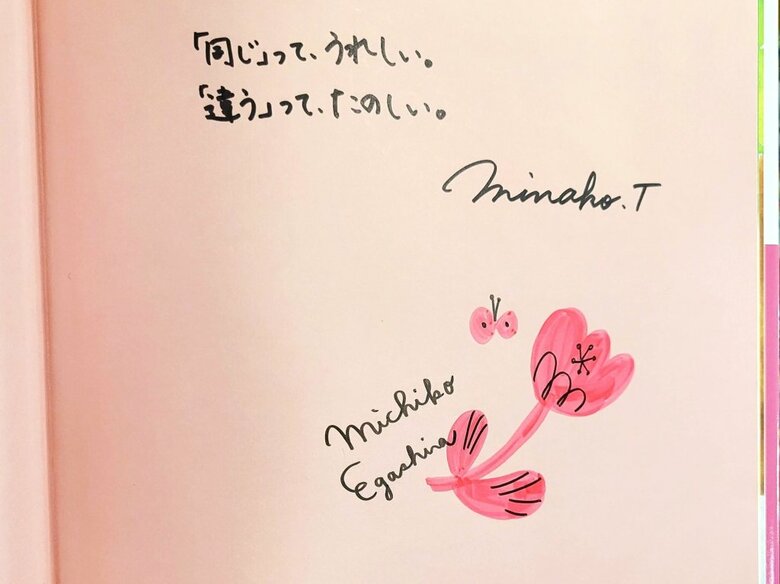 「同じ」って、うれしい。
「違う」って、たのしい。
Minako.T
Michiko
Egashira